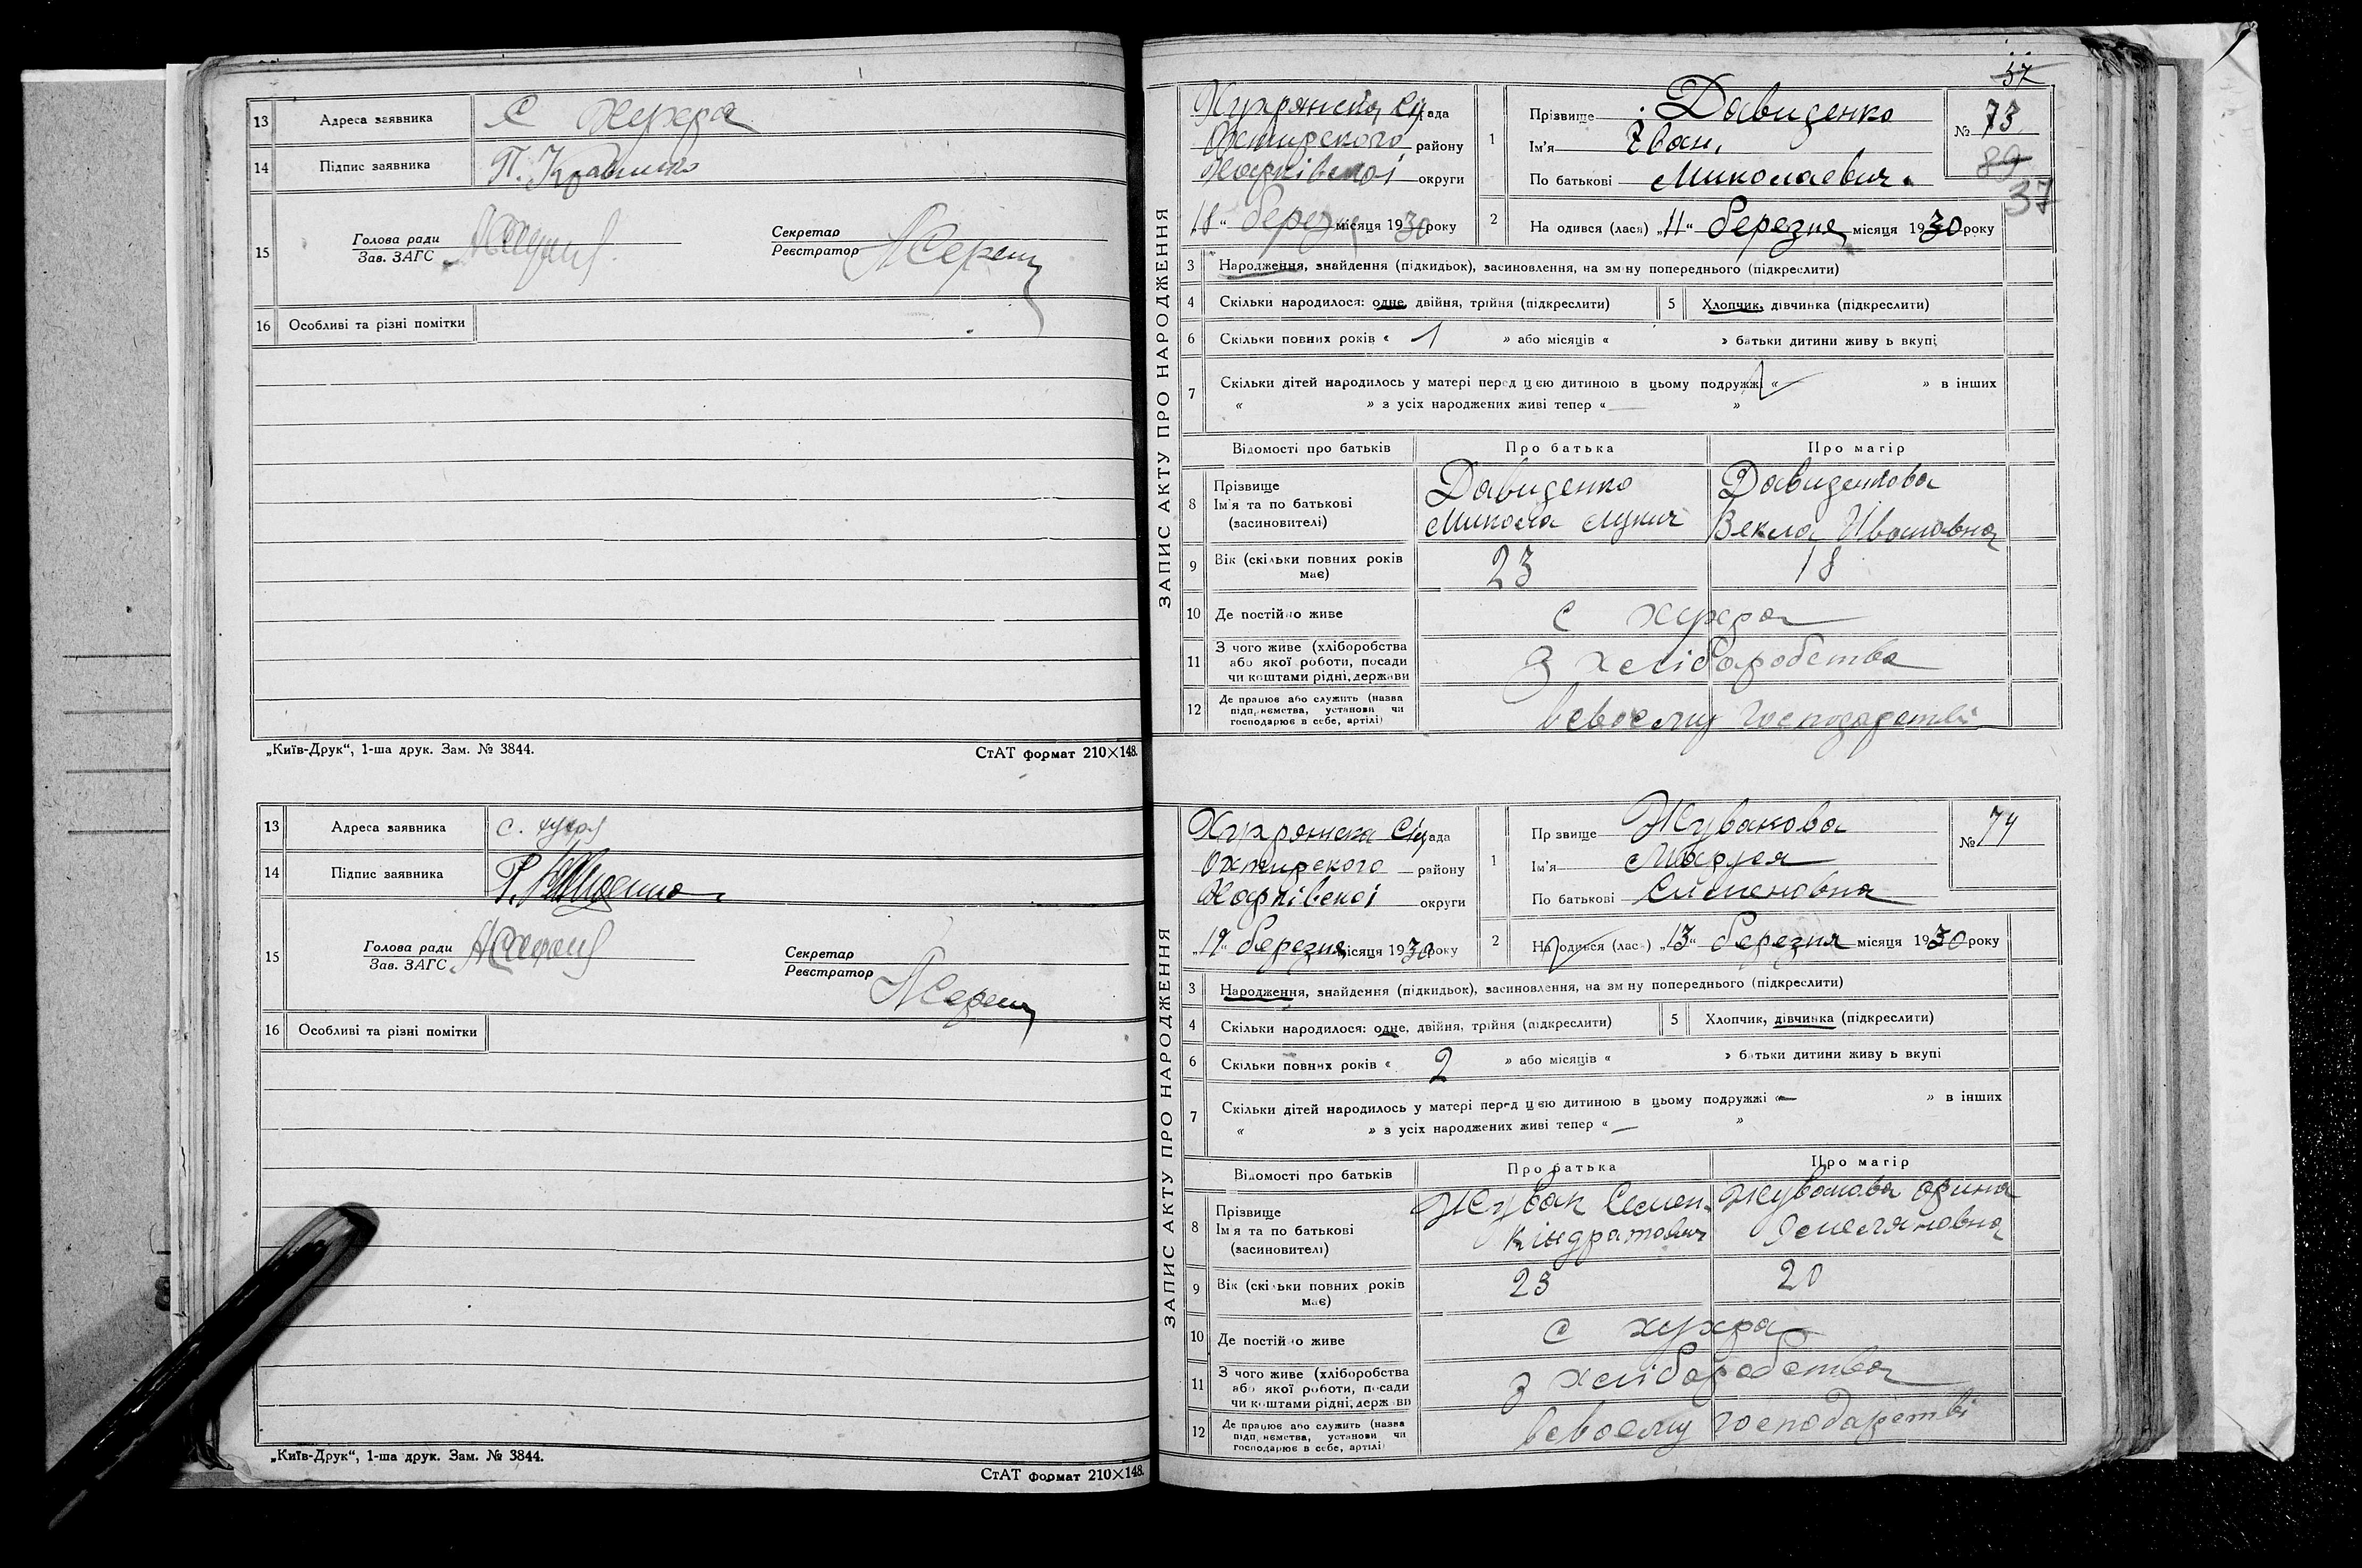 13 Адреса заявника С Хухра
14 Підпис заявника П.
15 Голова ради
Зав. ЗАГС
Секретар
Реєстратор
16 Особливі та різні помітки
„Київ-Друк“, 1-ша друк. Зам. № 3844.
СтАТ формат 210×148.
13 Адреса заявника с. Хухря
14 Підпис заявника
15 Голова ради
Зав. ЗАГС
Секретар
Реєстратор
16 Особливі та різні помітки
„Київ-Друк“, 1-ша друк. Зам. № 3844.
СтАТ формат 210×148.
37
ЗАПИС АКТУ ПРО НАРОДЖЕННЯ
Хухрянска Сіл рада
Охтирского району
Харківскої округи
18“ березня місяця 1930 року
1 Прізвище Давиденко
Ім'я Іван
По батькові Миколаевич
№ 73
89
37
2 На одився (лася) „11“ березня місяця 1930 року
3 Народження, знайдення (підкидьок), засиновлення, на зміну попереднього (підкреслити)
4 Скільки народилося: одне, двійня, трійня (підкреслити)
5 Хлопчик, дівчинка (підкреслити)
6 Скільки повних років « 1 » або місяців « » батьки дитини живу ь вкупі
7 Скільки дітей народилось у матері перед цією дитиною в цьому подружжі «—» в інших
« » з усіх народжених живі тепер «— »
Відомості про батьків Про батька Про матір
8 Прізвище
Ім'я та по батькові
(засиновителі)
Давиденко
Микола Лукич
Давиденкова
Векла Ивановна
9 Вік (скільки повних років має) 23 18
10 Де постійно живе с хухра
11 З чого живе (хліборобства
або якої роботи, посади
чи коштами рідні, держави
З хліборобства
12 Де працює або служить (назва
підприємства, установи чи
господарює в себе, артілі)
в своему господарстві
ЗАПИС АКТУ ПРО НАРОДЖЕННЯ
Хухрянска Сіл рада
Охтирского району
Харківскої округи
„19“ березня місяця 1930 року
1 Пр звище Жувакова
Ім'я Марія
По батькові Семеновна
№ 74
2 Народився (лас ) „13“ березня місяця 1930 року
3 Народження, знайдення (підкидьок), засиновлення, на зміну попереднього (підкреслити)
4 Скільки народилося: одне, двійня, трійня (підкреслити)
5 Хлопчик, дівчинка (підкреслити)
6 Скільки повних років « 2 » або місяців « » батьки дитини живу ь вкупі
7 Скільки дітей народилось у матері перед цією дитиною в цьому подружжі «— » в інших
« » з усіх народжених живі тепер «— »
Відомості про батьків Про батька Про матір
8 Прізвище
Ім'я та по батькові
(засиновителі)
Жувак Семен
Кіндратович
Жувакова Орина
Омеляновна
9 Вік (скільки повних років має) 23 20
10 Де постійно живе с хухра
11 З чого живе (хліборобства
або якої роботи, посади
чи коштами рідні, держави
З хліборобства
12 Де працює або служить (назва
підприємства, установи чи
господарює в себе, артілі)
в своему господарстві